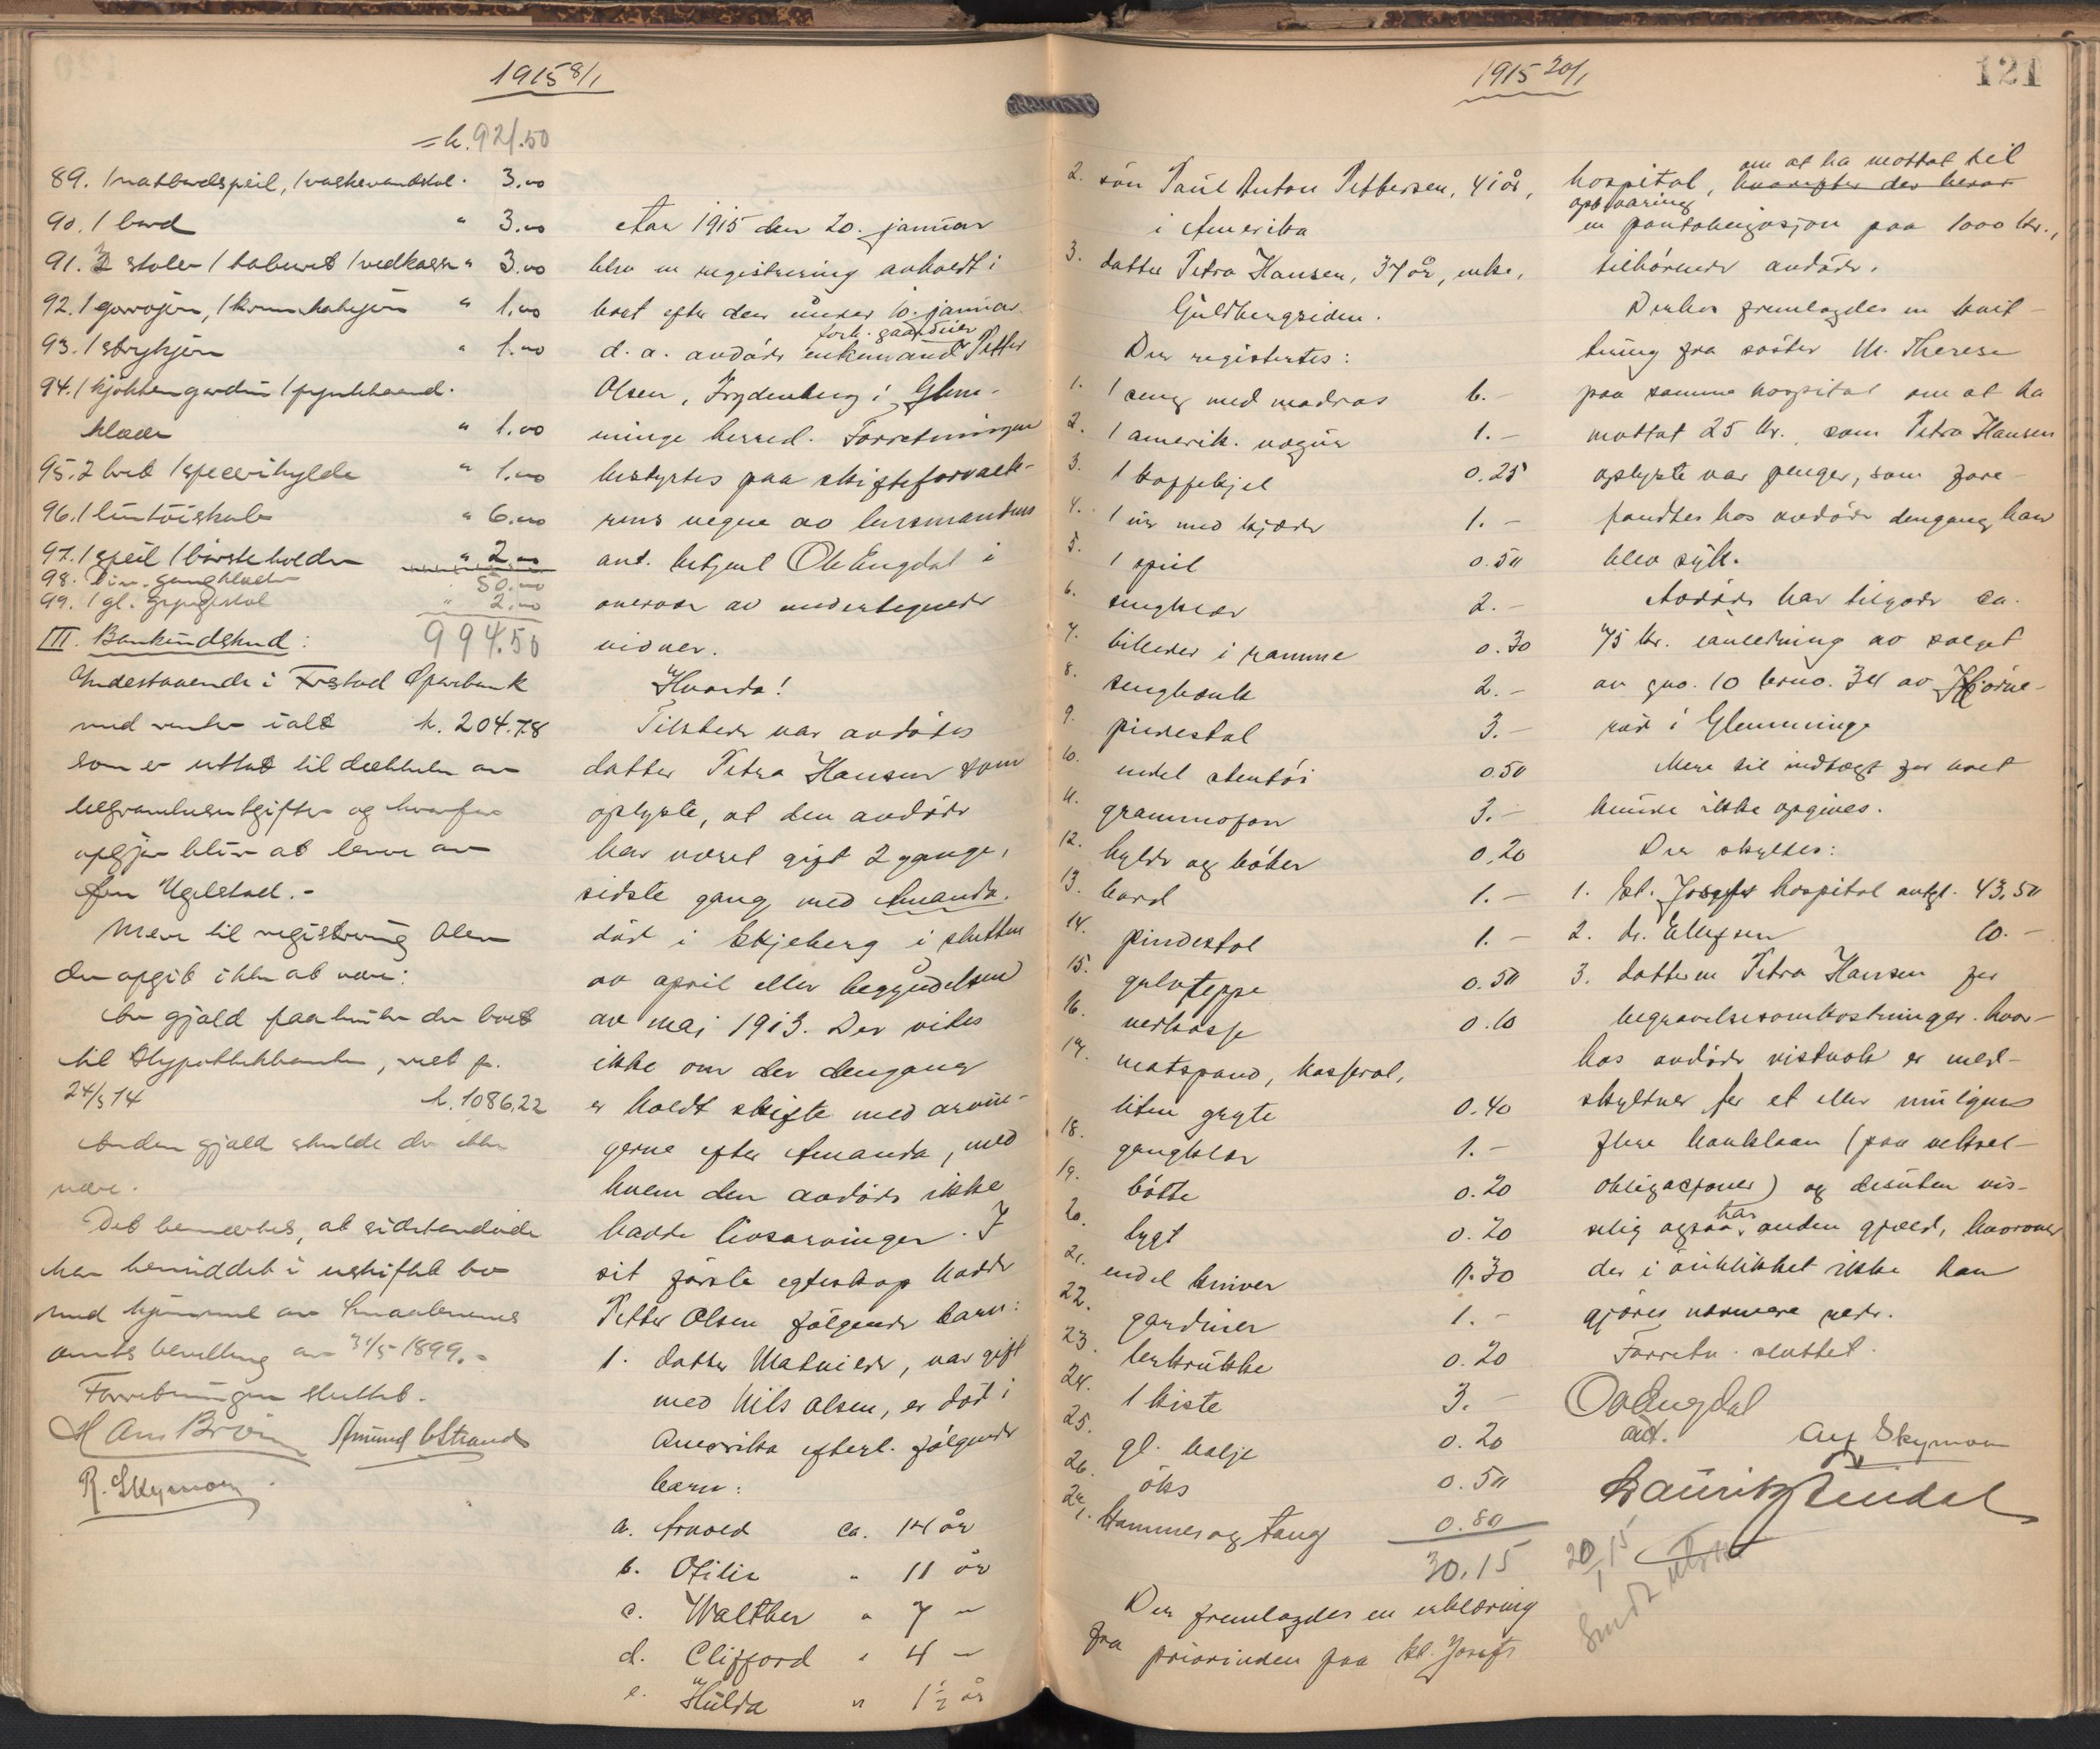 1915 8/1
= k. 921.50
89. 1 natbordspeil, 1 vaskevandstol. 3.00
90. 1 bord " 3.00
91. 3 stoler 1 taburet 1 vedkasse " 3.00
92. 1 " 1.00
93. 1 strykjern " 1.00
94. 1 kjökkengardin 1 pynthaand-
klæde " 1.00
95. 2 bret 1 specerihylde " 1.00
96. 1 lintöiskab " 6.00
97. 1 speil 1 börsteholder " 2.00
98. Div. gangklæder 50.00
99. 1 gl. gyngestol " 2.00
994.50
III. Bankindskud:
Indestaaende i Fr.stad Sparebank
med renter ialt k. 204.78
som er uttat til dækkelse av
begravelsesutgifter og hvorfor
opgjör blir at levere av
Ugelstad.-
Mere til registrering blev
der opgit ikke at være:
Av gjæld paahviler der boet
til Hypothekbanken, rest pr.
24/3 14 k. 1086.22
Anden gjæld skulde der ikke
være.
Det bemerkes, at sidstavdöde
har hensiddet i uskiftet bo
med hjemmel av Smaalenenes
amts bevilling av 31/5 1899.-
Forretningen sluttet.
Hans Brön Amund Strand
R. Skymoen
Aar 1915 den 20. januar
blev en registrering avholdt i
boet efter den under 10. januar
forh. gaardeier
d. a. avdöde enkemand Petter
Olsen, Frydenberg i Glem-
minge herred. Forretningen
bestyrtes paa skifteforvalte-
rens vegne av lensmandens
aut. betjent O. Engdal i
overvær av undertegnede
vidner.
Hvorda!
Tilstede var avdödes
datter Petra Hansen som
oplyste, at den avdöde
har været gift 2 gange,
sidste gang med Amanda.
död i Skjeberg i slutten
av april eller begyndelsen
av mai 1913. Der vites
ikke om der dengang
er holdt skifte med arvin-
gerne efter Amanda, med
hvem den avdöde ikke
hadde livsarvinger. I
sit förste egteskap hadde
Petter Olsen fölgende barn:
1. datter Matuilde, var gift
med Nils Olsen, er död i
Amerika efterl. fölgende
barn:
a. Arnold ca. 14 år
b. Otilie " 11 år
c. Walther " 7 "
d. Clifford " 4 "
e. Hulda " 1½ år
1915 20/1
121
2. sön Paul Anton Pettersen, 41 år,
i Amerika
3. datter Petra Hansen, 37 år, enke,
Guldbergsiden.
Der registertes:
1. 1 seng med madras 6.-
2. 1 amerik. 1.-
3. 1 kaffekjel 0.25
4. 1 ur med kjæde 1.-
5. 1 speil 0.50
6. sengklær 2.-
7. billeder i ramme 0.30
8. sengbænk 2.-
9. pindestol 3.-
10. endel stentöi 0.50
11. grammofon 3.-
12. hylde og böker 0.20
13. bord 1.-
14. pindestol 1.-
15. gulvteppe 0.50
16. vedkasse 0.10
17. matspand, kasserol,
liten gryte 0.40
18. gangklær 1.-
19. bötte 0.20
20. lygt 0.20
21. endel kniver 0.30
22. gardiner 1.-
23. lerkrukke 0.20
24. 1 kiste 3.-
25. gl. balje 0.20
26. öks 0.50
27. Hammer og tang 0.80
30.15
Der fremlagdes en erklæring
fra priorinden paa St. Josefs
om at ha mottat til
hospital, hvorefter der beror
opbevaring
en pantobligasjon paa 1000 kr.,
tilhörende avdöde.
Derhos fremlagdes en kvit-
tering fra söster M. Therese
paa samme hospital om at ha
mottat 25 kr., som Petra Hansen
oplyste var penger, som fore-
fandtes hos avdöde dengang han
blev syk.
Avdöde har tilgode ca.
75 kr. i anledning av salget
av gno. 10 brno. 34 av Hjörne-
röd i Glemminge
Mere til indtægt for boet
kunde ikke opgives.
Der skyldes:
1. St. Josefs hospital antgl. 43.50
2. dr. Ellefsen 10.-
3. datteren Petra Hansen for
begravelsesomkostninger. hvor-
hos avdöde vistnok er med-
skyldner for et eller muligens
flere banklaan (paa veksel-
obligasjoner) og desuten vis-
har
selig ogsaa anden gjæld, hvorom
der i öieblikket ikke kan
gjöres nærmere rede.
Forretn. sluttet.
O. Engdal
aut. Alf Skymoen
Lauritz Lindal
20/1 15
Sendt